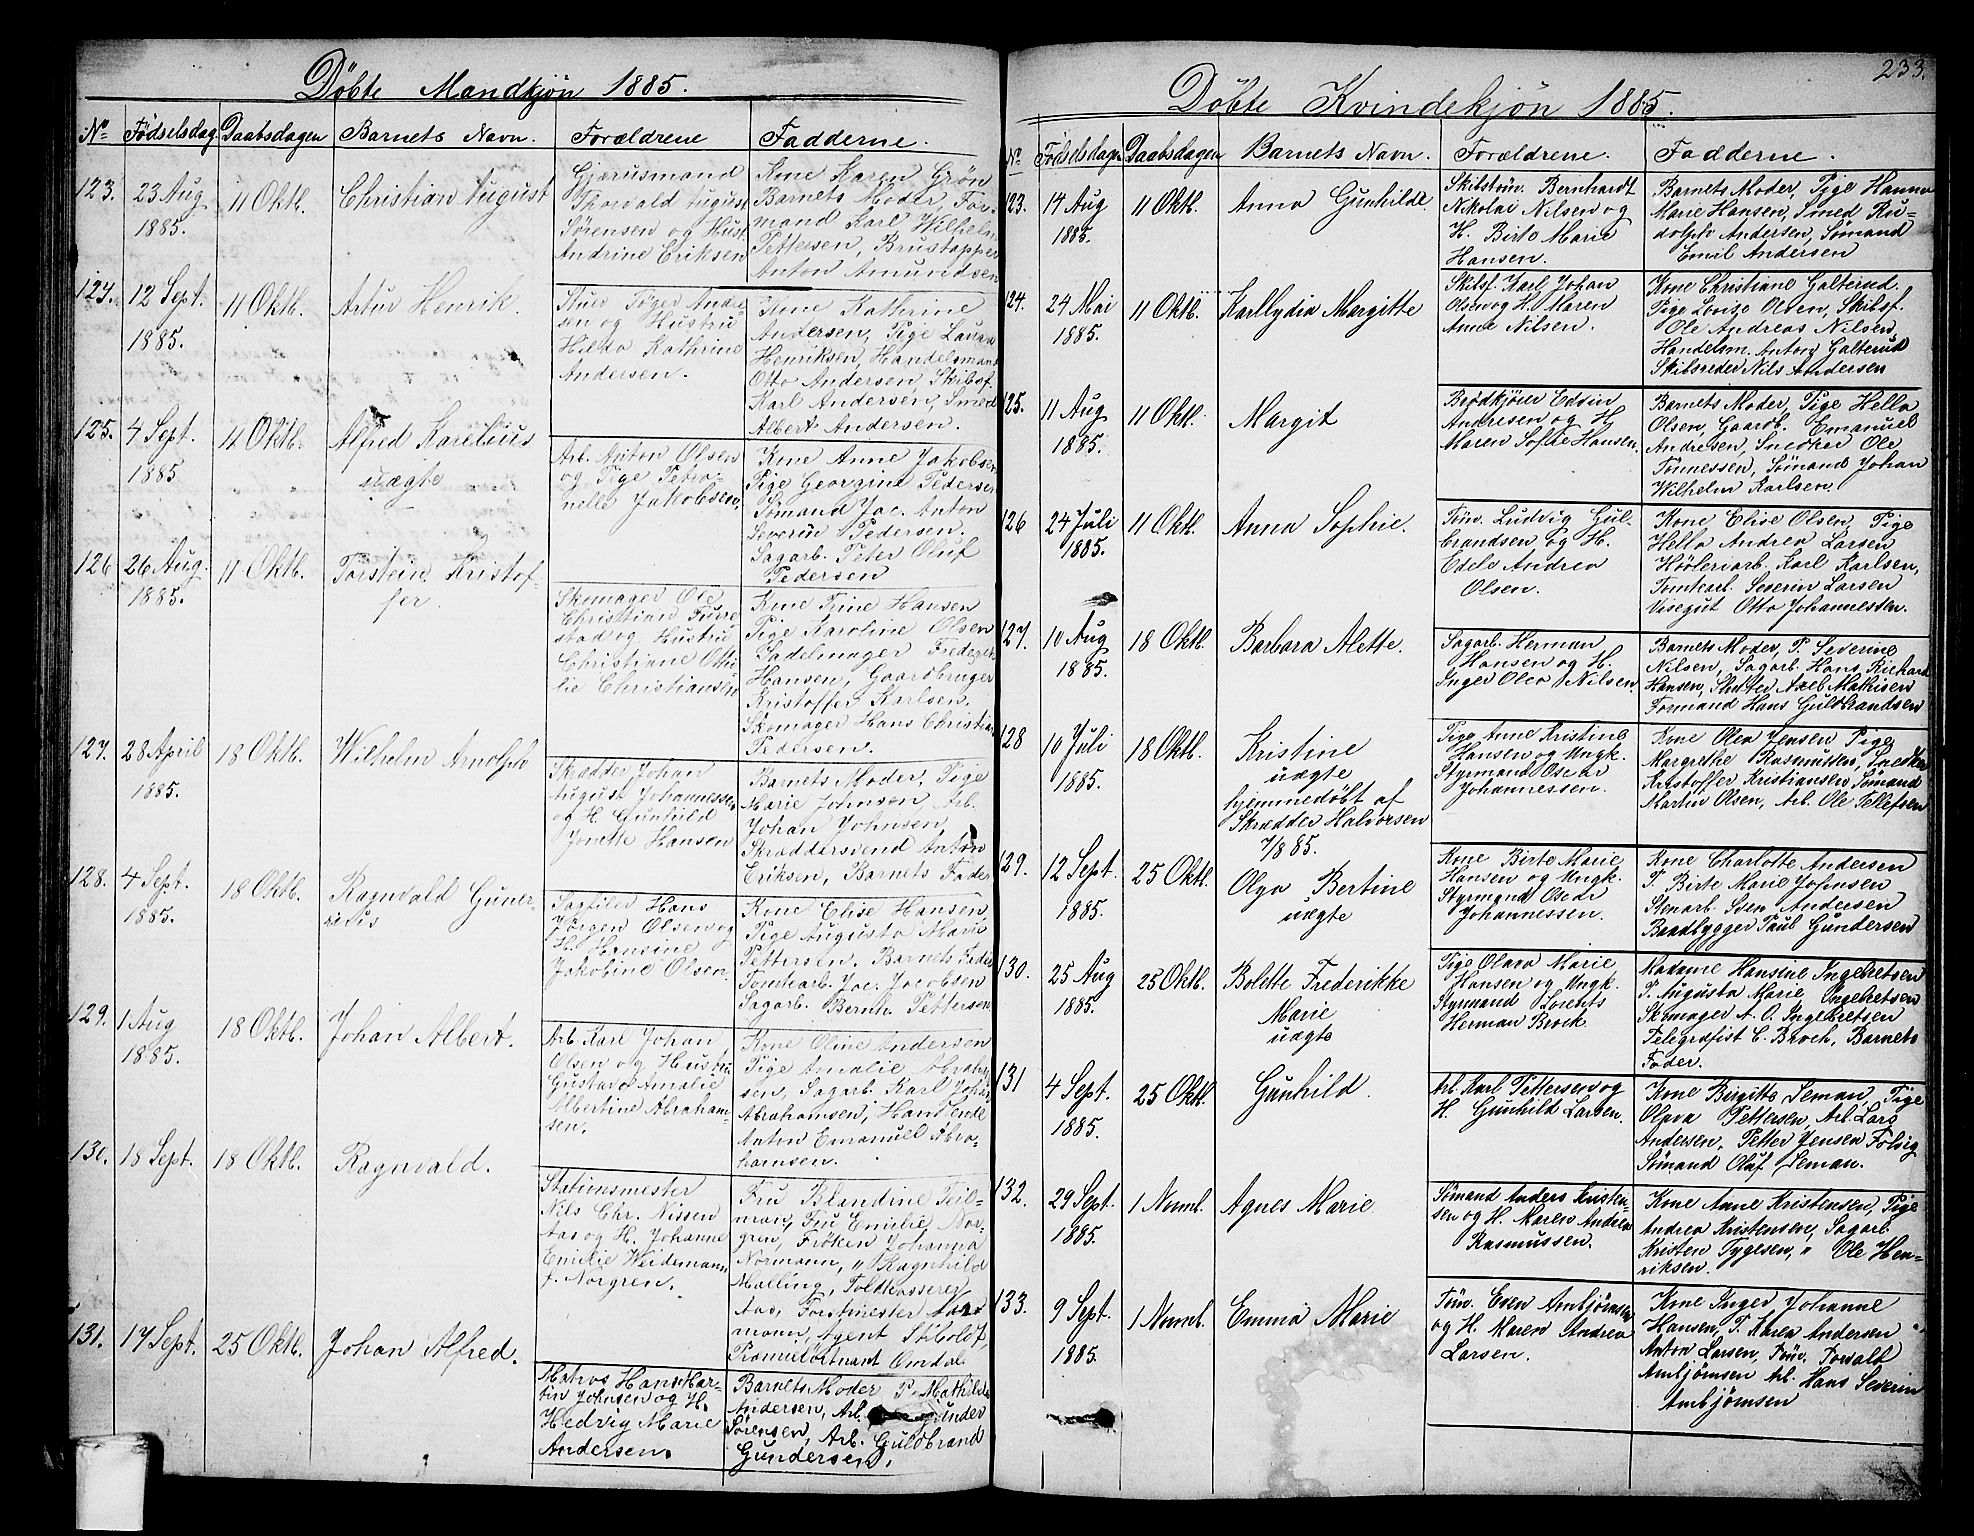 Döbte Mandkjön 1885.
No Födselsdag Daabsdagen Barnets Navn. Forældrene Fadderne.
123. 23 Aug 1885. 11 Oktb. Christian August
Gjørtsmand
Thorvald August
Sörensen og Hust.
Andrine Eriksen
Kone Karen Grön
Barnets Moder, For-
mand Karl Wilhelm
Pettersen, Brustapper
Anton Amundsen
124. 12 Sept. 1885. 11 Oktb. Artur Henrik.
Stuer Töger Andre
sen og Hustru
Hilda Kathrine
Andersen.
Kone Kathrine
Andersen, Pige Laura
Henriksen, Handelsmand
Otto Andersen, Skibsf.
Karl Andersen, Smed
Albert Andersen.
125. 4 Sept. 1885 11 Oktb. Alfred Karelius
uægte
Arb. Anton Olsen
og Pige Petro-
nelle Jakobsen.
Kone Anne Jakobsen
Pige Georgine Pedersen
Sömand Jac. Anton
Severin Pedersen.
Sagarb. Peter Oluf
Pedersen
126 26 Aug. 1885. 11 Oktb. Torstein Kristof-
fer.
Skomager Ole
Christian Fure
stad og Hustru
Christiane Otti
lie Christiansen
Kone Trine Hansen
Pige Karoline Olsen
Sadelmager Frederik
Hansen, Gaardbruger
Kristoffer Karlsen.
Skomager Hans Christian
Pedersen.
127. 28 April 1885. 18 Oktb. Wilhelm Arnolph
Skrædder Johan
August Johannessen
og H. Gunhild
Jonette Hansen
Barnets Moder, Pige
Marie Johnsen Arb.
Johan Johnsen,
Skræddersvend Anton
Eriksen, Barnets Fader
128. 4 Sept. 1885. 18 Oktb. Ragnvald Guner-
rius
Sagfiler Hans
Jörgen Olsen og
H. Hansine
Jakobine Olsen.
Kone Elise Hansen,
Pige Augusta Marie
Pettersen. Barnets Fader
Tomtearb. Jac. Jacobsen
Sagarb. Bernh. Pettersen
129. 1 Aug 1885. 18 Oktb. Johan Albert.
Arb. Karl Johan
Olsen og Hustru
Gustava Amalie
Albertine Abraham-
sen.
Kone Oline Andersen
Pige Amalie Abraham
sen, Sagarb. Karl Johan
Abrahamsen, Handlende
Anton Emanuel Abra-
hamsen.
130. 18 Sept. 18 Oktb. Ragnvald.
Stationsmester
Nils Chr. Nissen
Aas og H. Johanne
Emilie Weidemann
f. Norgren.
Fru Blandine Teil-
man, Fru Emilie Nor-
gren, Fröken Johanna
Normann, " Ragnhild
Malling, Toldkasserer
Aas, Forstmester Nor-
mann, Agent Stibolt,
Premierlöitnant Omdal.
131. 17 Sept. 25 Oktb. Johan Alfred.
Matros Hans Mar-
tin Johnsen og H.
Hedvig Marie
Andersen.
Barnets Moder P. Mathilde
Andersen, Arb. Gunder
Sörensen, Arb. Guldbrand
Gundersen.
233.
Döbte Kvindekjön 1885.
No Födselsdagen Daabsdagen Barnets Navn. Forældrene. Fadderne.
123. 14 Aug 1885. 11 Oktb. Anna Gunhilde
Skibstöm. Bernhardt
Nikolai Nilsen og
H. Birte Marie
Hansen.
Barnets Moder, Pige Hanna
Marie Hansen, Smed Ru-
dolph Andersen, Sömand
Emil Andersen
124. 24 Mai 1885. 11 Oktb. Karllydia Margitte
Skibsf. Karl Johan
Olsen og H. Maren
Anne Nilsen.
Kone Christiane Galterud.
Pige Louise Olsen, Skibsf.
Ole Andreas Nilsen,
Handelsm. Anton Galterud
Skibsreder Nils Andersen
125. 11 Aug 1885. 11 Oktb. Margit
Brödkjörer Edvin
Andresen og H.
Maren Sofie Hansen.
Barnets Moder, Pige Hella
Olsen, Gaardb. Emanuel
Andresen, Snedker Ole
Tönnessen, Sömand Johan
Wilhelm Karlsen.
126 24 Juli 1885. 11 Oktb. Anna Sophie.
Töm. Ludvig Gul-
brandsen og H.
Edele Andrea
Olsen.
Kone Elise Olsen, Pige
Hella Andrea Larsen
Höbleriarb. Karl Karlsen,
Tomtearb. Severin Larsen
Visegut Otto Johannessen.
127. 10 Aug 1885. 18 Oktb. Barbara Alette.
Sagarb. Herman
Hansen og H.
Inger Olea Nilsen.
Barnets Moder, P. Severine
Nilsen, Sagarb. Hans Richard
Hansen, Slagter Axel Mathisen
Formand Hans Guldbrandsen
128 10 Juli 1885. 18 Oktb. Kristine
uægte
hjemmedöbt af
Skrædder Halvorsen
7/8 85.
Pige Anne Kristine
Hansen og Ungk.
Styrmand Oscar
Johannessen.
Kone Olea Jensen Pige
Margrethe Rasmussen, Snedker
Kristoffer Kristiansen Sömand
Martin Olsen, Arb. Ole Tellefsen
129. 12 Sept. 1885. 25 Oktb. Olga Bertine
uægte
Kone Birte Marie
Hansen og Ungk.
Styrmand Oscar
Johannessen.
Kone Charlotte Andersen
P. Birte Marie Johnsen
Stenarb. Sven Andersen
Baadbygger Paul Gundersen
130. 25 Aug 1885. 25 Oktb. Bolette Frederikke
Marie
uægte
Pige Olava Marie
Hansen og Ungk.
Styrmand Lorents
Herman Brock.
Madame Hansine Ingebretsen
P. Augusta Marie Ingebretsen
Skomager A. O. Ingebretsen
Telegrafist C. Broch, Barnets
Fader.
131 4 Sept. 1885. 25 Oktb. Gunhild.
Arb. Karl Pettersen og
H. Gunhild Larsen.
Kone Birgitte Leman, Pige
Olava Pettersen, Arb. Lars
Andersen, Petter Jensen Folvig
Sömand Oluf Leman.
132. 29 Sept. 1885. 1 Novmb. Agnes Marie
Sömand Anders Kristen-
sen og H. Karen Andrea
Rasmussen.
Kone Anne Kristensen, Pige
Andrea Kristensen, Sagarb.
Kristen Tygesen, " Ole Hen-
riksen.
133. 9 Sept. 1885. 1 Novmb. Emma Marie
Töm. Even Ambjörnsen
og H. Maren Andrea
Larsen.
Kone Inger Johanne
Hansen, P. Karen Andersen
Anton Larsen, Töm. Torvalt
Ambjörnsen Arb. Hans Severin
Ambjörnsen